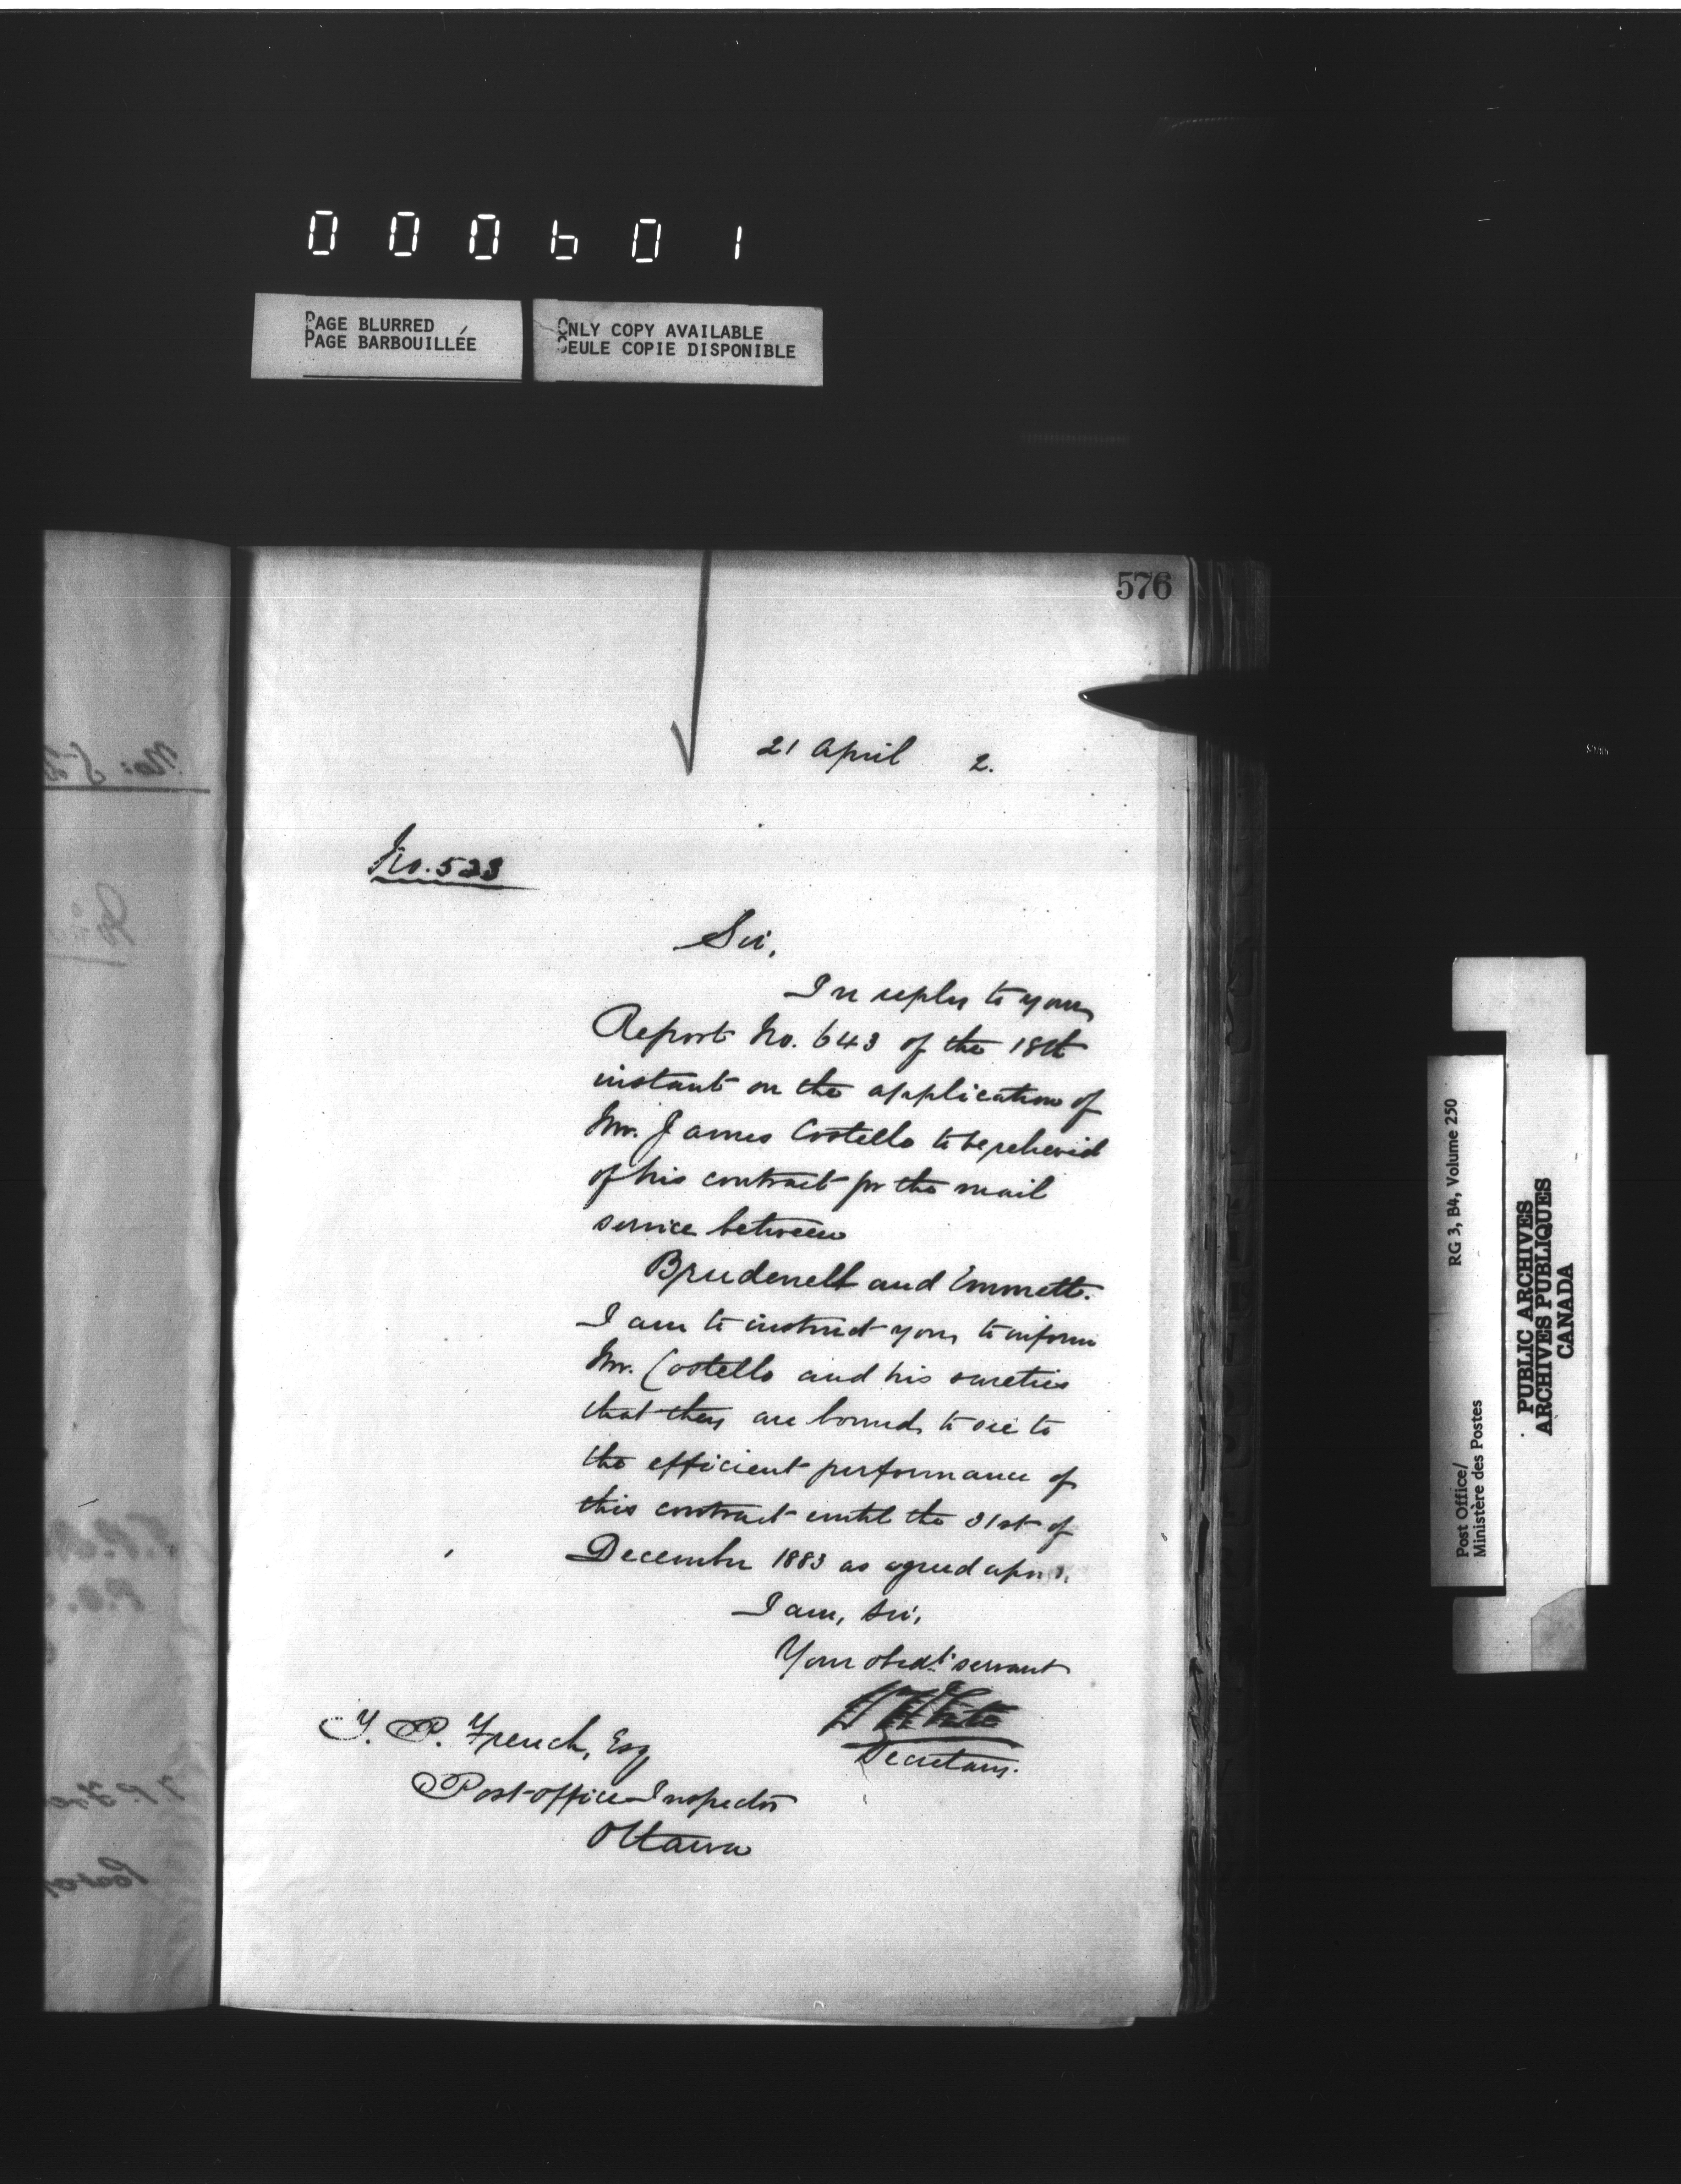 000601
PAGE BLURRED
PAGE BARBOUILLÉE
ONLY COPY AVAILABLE
SEULE COPIE DISPONIBLE
576
21 April 2.
No. 523
Sir,
In reply to your
Report No. 643 of the 18th
instant on the application of
Mr. James Costello to be relieved
of his contract for the mail
service between
Brudenell and Emmett.
I am to instruct you to inform
Mr. Costello and his sureties
that they are bound to see to
the efficient performance of
this contract until the 31st of
December 1883 as agreed upon.
I am, Sir,
Your obedt. servant
Secretary.
T. P. French, Esq
Post-office Inspector
Ottawa
Post Office/
Ministère des Postes
RG 3, B4, Volume 250
PUBLIC ARCHIVES
ARCHIVES PUBLIQUES
CANADA